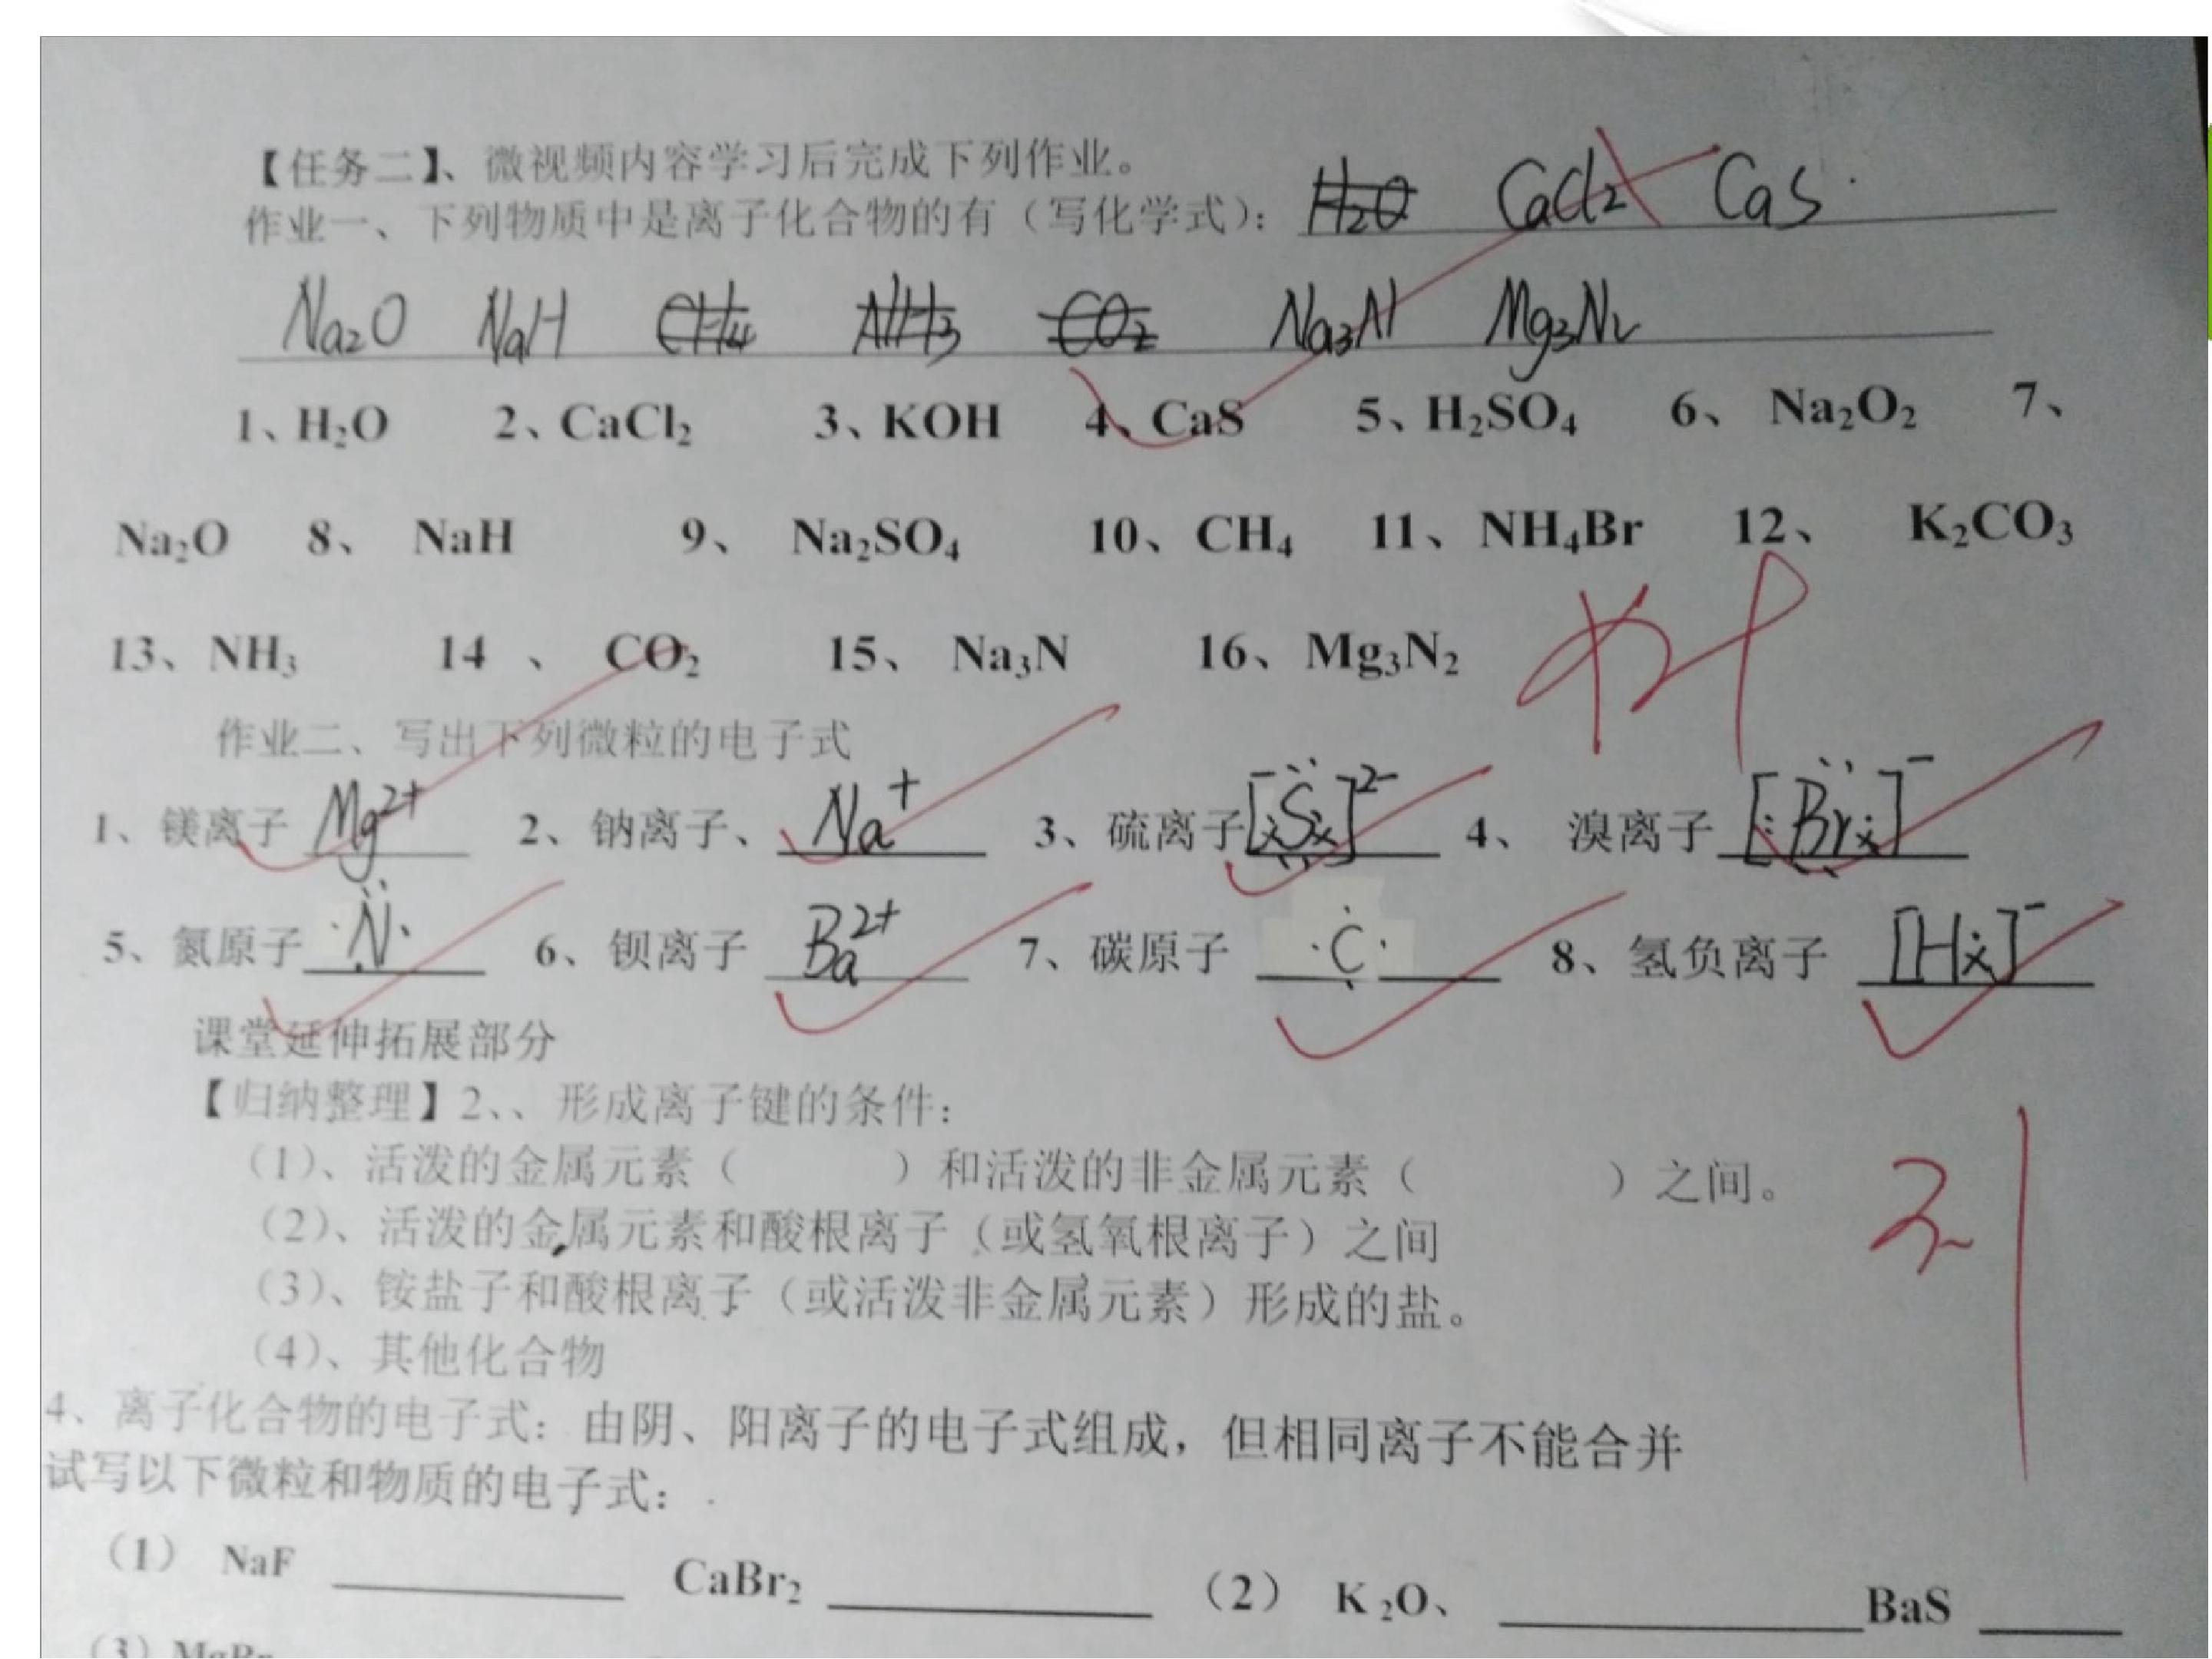 【任务二】、微视频内容学习后完成下列作业。
作业一、下列物质中是离子化合物的有（写化学式）： H₂O CaCl₂ CaS
Na₂O NaH CH₄ NH₃ CO₂ Na₃N Mg₃N₂
1、H₂O 2、CaCl₂ 3、KOH 4、CaS 5、H₂SO₄ 6、 Na₂O₂ 7、
Na₂O 8、 NaH 9、 Na₂SO₄ 10、CH₄ 11、NH₄Br 12、 K₂CO₃
13、NH₃ 14 、 CO₂ 15、 Na₃N 16、Mg₃N₂
作业二、写出下列微粒的电子式
1、镁离子 Mg²⁺ 2、钠离子、 Na⁺ 3、硫离子 [S]²⁻ 4、 溴离子 [Br]⁻
5、氮原子 N 6、钡离子 Ba²⁺ 7、碳原子 C 8、氢负离子 [H]⁻
课堂延伸拓展部分
【归纳整理】2、、形成离子键的条件：
（1）、活泼的金属元素（ ）和活泼的非金属元素（ ）之间。
（2）、活泼的金属元素和酸根离子（或氢氧根离子）之间
（3）、铵盐子和酸根离子（或活泼非金属元素）形成的盐。
（4）、其他化合物
4、离子化合物的电子式：由阴、阳离子的电子式组成，但相同离子不能合并
试写以下微粒和物质的电子式：
（1） NaF CaBr₂ （2） K₂O、 BaS
（3）MgBr